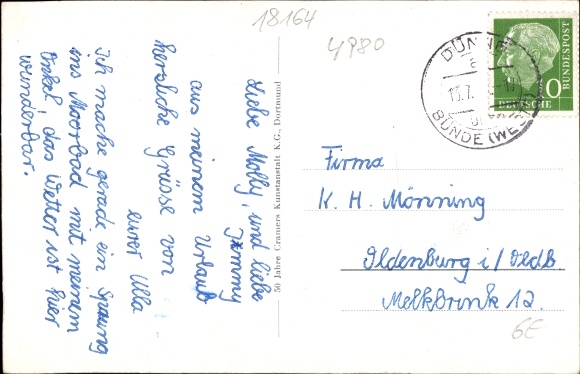 18164
4980
Liebe Molly, und liebe
Jimmy
aus meinem Urlaub
herzliche Grüsse von
eurer Ulla
Ich mache gerade ein Sprung
ins Moorbad mit meinem
Onkel, das Wetter ist hier
wunderbar.
50 Jahre Cramers Kunstanstalt K.G., Dortmund
DÜNNE
13.7.
BÜNDE (WE
DEUTSCHE
BUNDESPOST
Firma
K. H. Mönning
Oldenburg i/Oldb.
Melkbrink 12.
6E